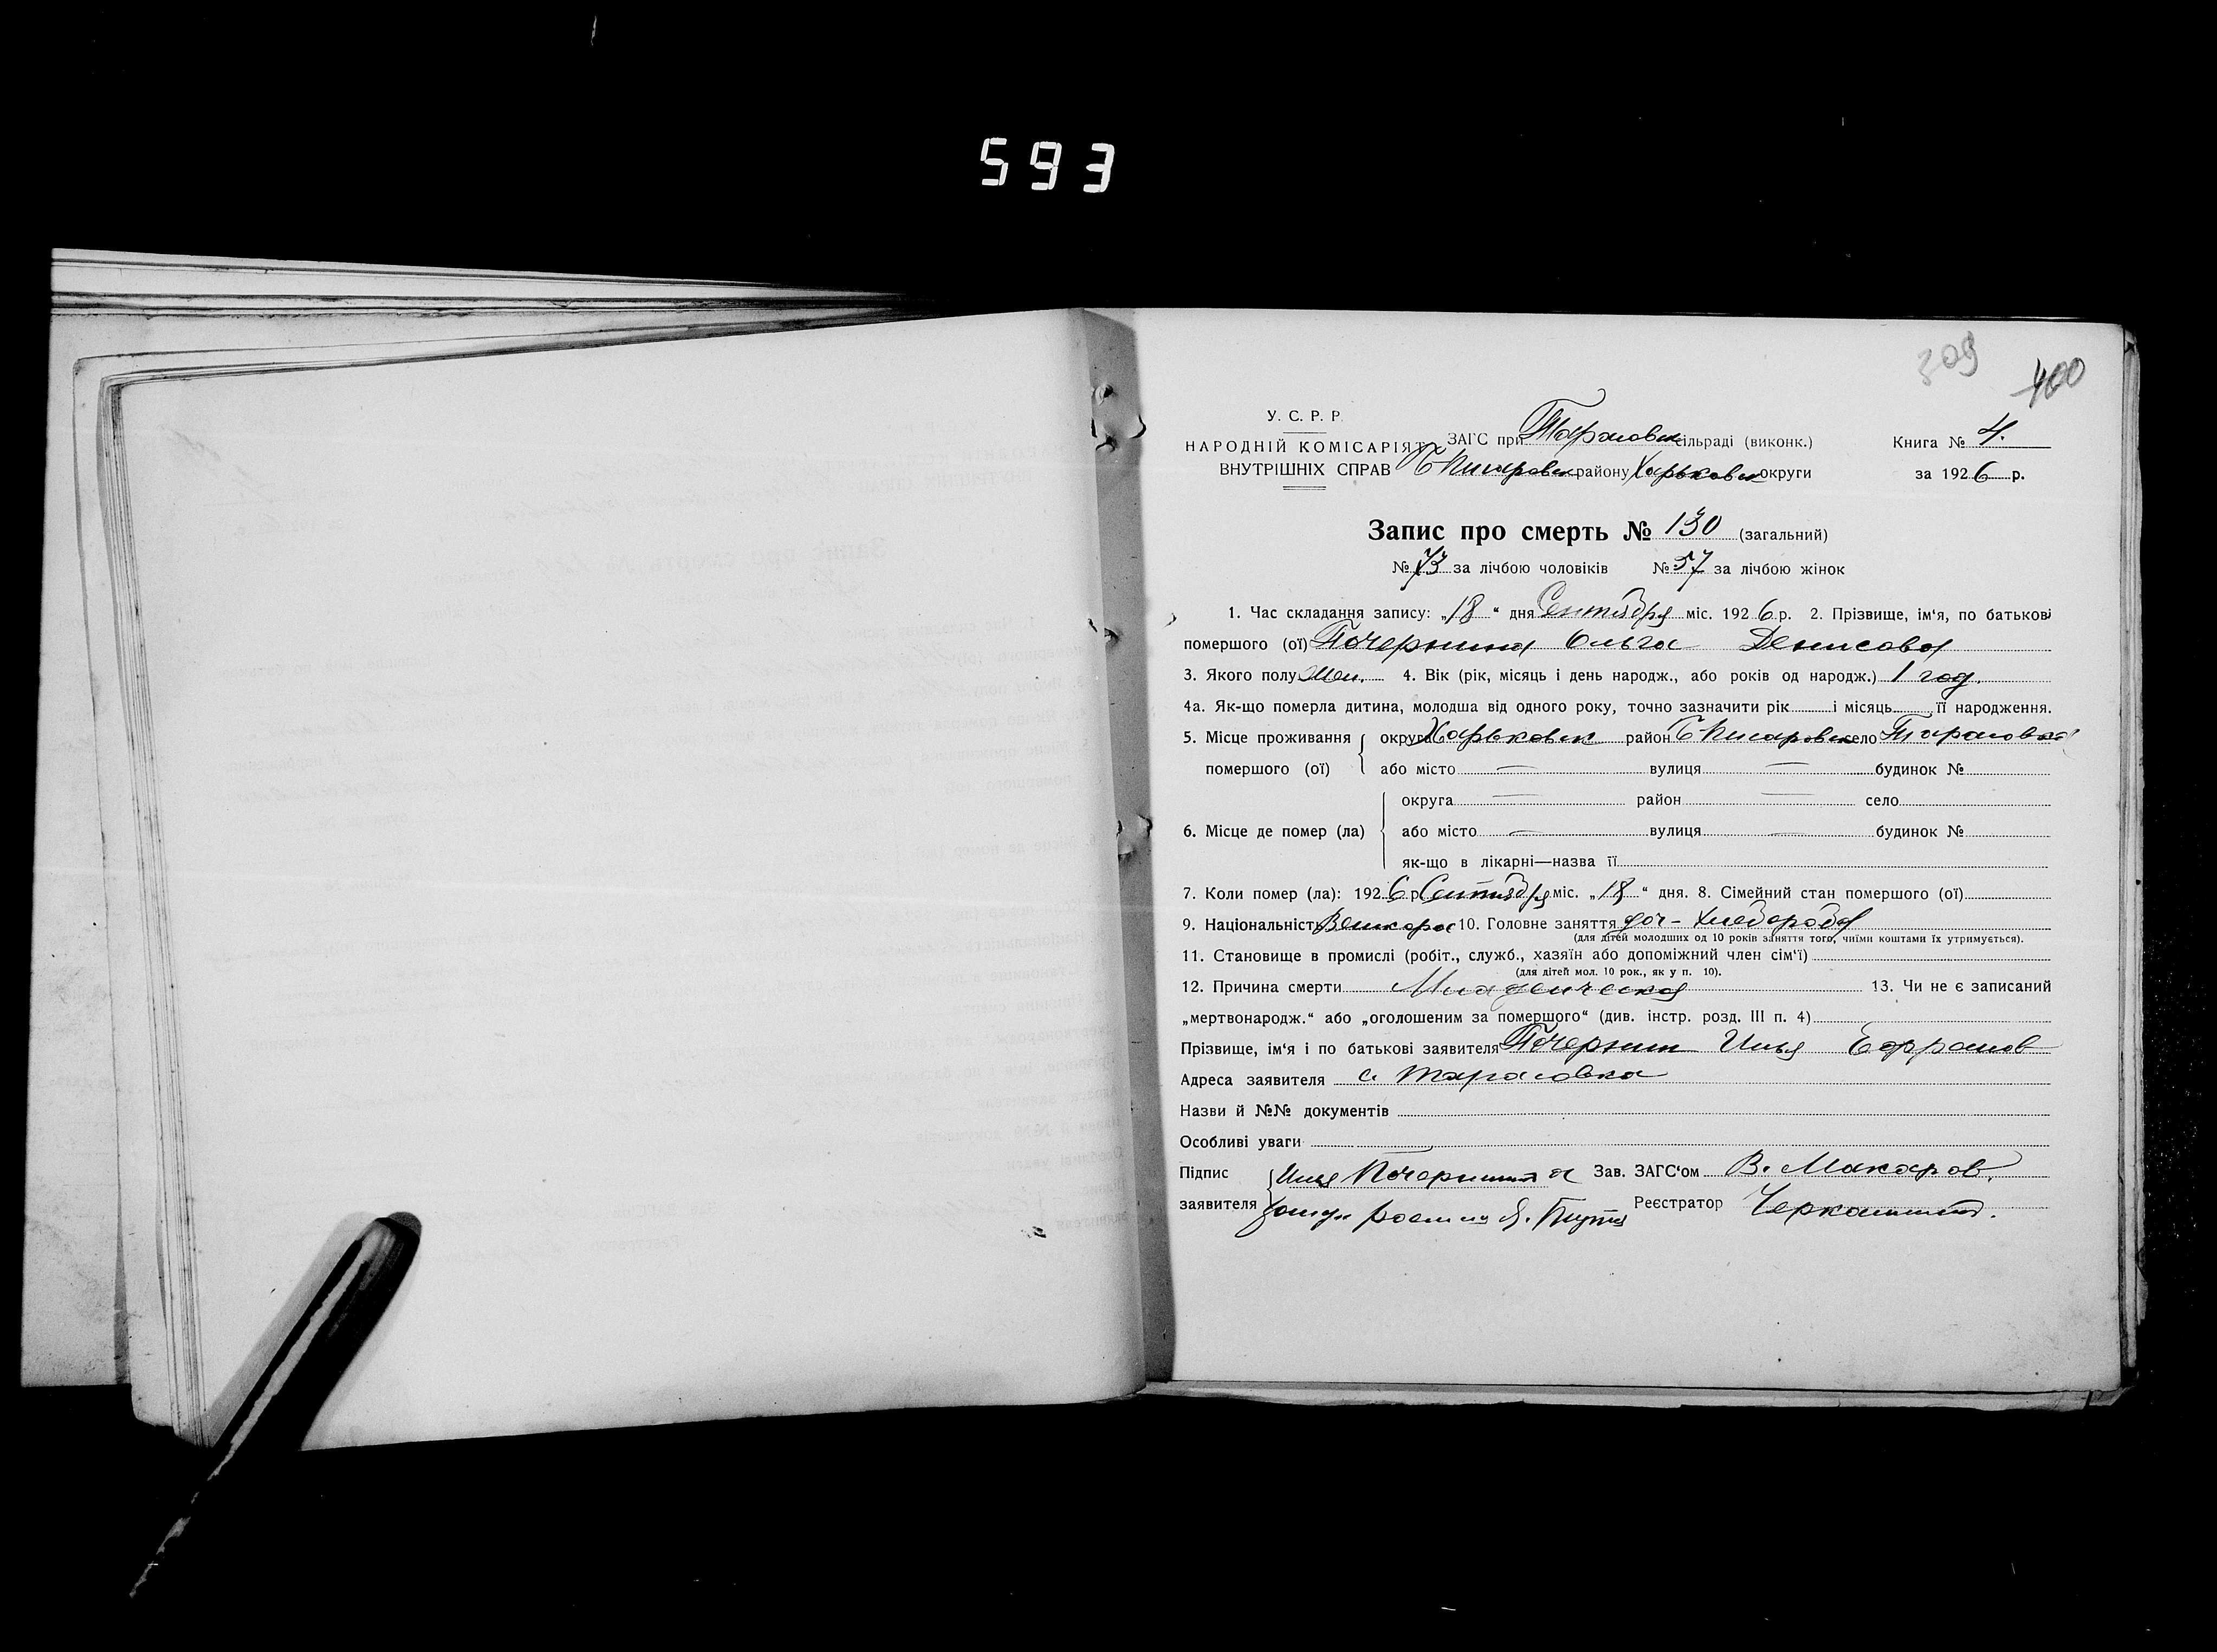 593
309
400
У. С. Р. Р.
НАРОДНІЙ КОМІСАРІЯТ
ВНУТРІШНІХ СПРАВ
ЗАГС при Тарасовск сільраді (виконк.)
Б Писаровск району Харьковск округи
Книга № 4.
за 1926 р.
Запис про смерть № 130 (загальний)
№ 73 за лічбою чоловіків № 57 за лічбою жінок
1. Час складання запису: „18“ дня Сентября міс. 1926 р. 2. Прізвище, ім'я, по батькові
помершого (ої) Почернина Ольга Денисова
3. Якого полу Жен. 4. Вік (рік, місяць і день народж., або років од народж.) 1 год.
4а. Як-що померла дитина, молодша від одного року, точно зазначити рік і місяць її народження.
5. Місце проживання помершого (ої) округа Харьковск район Б Писаровск село Тарасовка
або місто — вулиця — будинок №
6. Місце де помер (ла) округа — район — село
або місто — вулиця — будинок №
як-що в лікарні—назва її
7. Коли помер (ла): 1926 р. Сентября міс. „18“ дня. 8. Сімейний стан помершого (ої)
9. Національність Великорос 10. Головне заняття доч- хлебороба
(для дітей молодших од 10 років заняття того, чиїми коштами їх утримується).
11. Становище в промислі (робіт., служб., хазяїн або допоміжний член сім'ї)
(для дітей мол. 10 рок., як у п. 10).
12. Причина смерти Младенческая 13. Чи не є записаний
„мертвонародж.“ або „оголошеним за помершого“ (див. інстр. розд. III п. 4)
Прізвище, ім'я і по батькові заявителя Почернин Илья Ефрамов
Адреса заявителя с. Тарасовка
Назви й №№ документів
Особливі уваги
Підпис заявителя Илья Почернин а
Зав. ЗАГС'ом В. Макаров.
Реєстратор